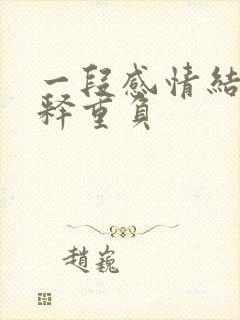 一段感情結
釋重負
趙巍